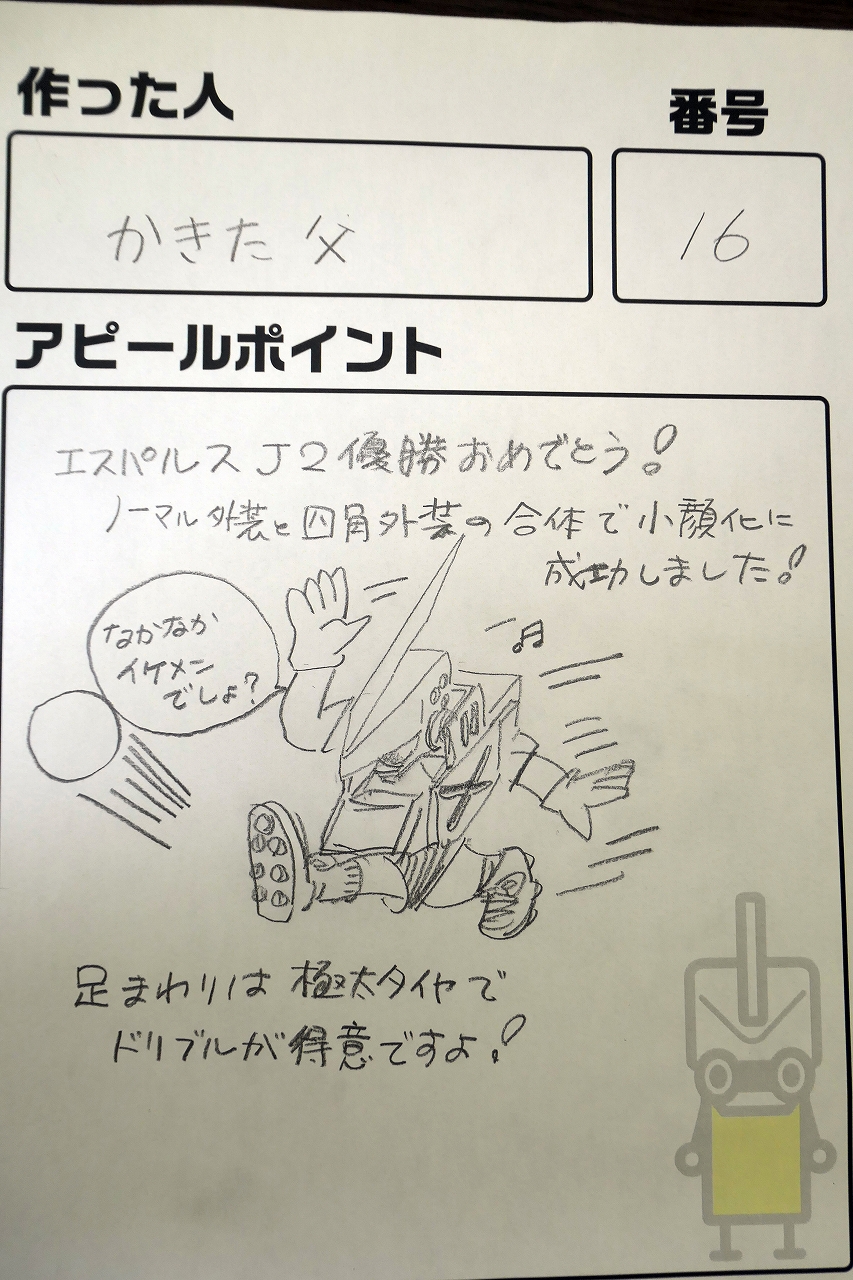 作った人
番号
かきた 父
16
アピールポイント
エスパルス J2優勝おめでとう!
ノーマル外装と四角外装の合体で小顔化に
成功しました!
なかなか
イケメン
でしょ?
足まわりは 極太タイヤで
ドリブルが得意ですよ!